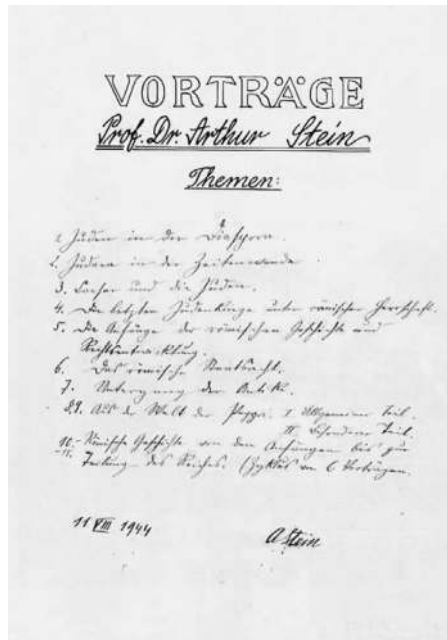 VORTRÄGE
Prof. Dr. Arthur Stein
Themen:
1. Juden in der Diaspora.
2. Judäa in der Zeitenwende
3. Caesar und die Juden.
4. Die letzten Judenkriege unter römischer Herrschaft.
5. Die Anfänge der römischen Geschichte und
Rechtsentwicklung.
6. Das römische Staatsrecht.
7. Untergang der Antike.
8.9. Aus der Welt der Papyri. I Allgemeiner Teil.
II. Besonderer Teil.
10.- Römische Geschichte von den Anfängen bis zur
Teilung des Reiches. (Zyklus von 6 Vorträgen.
11 VIII 1944
AStein